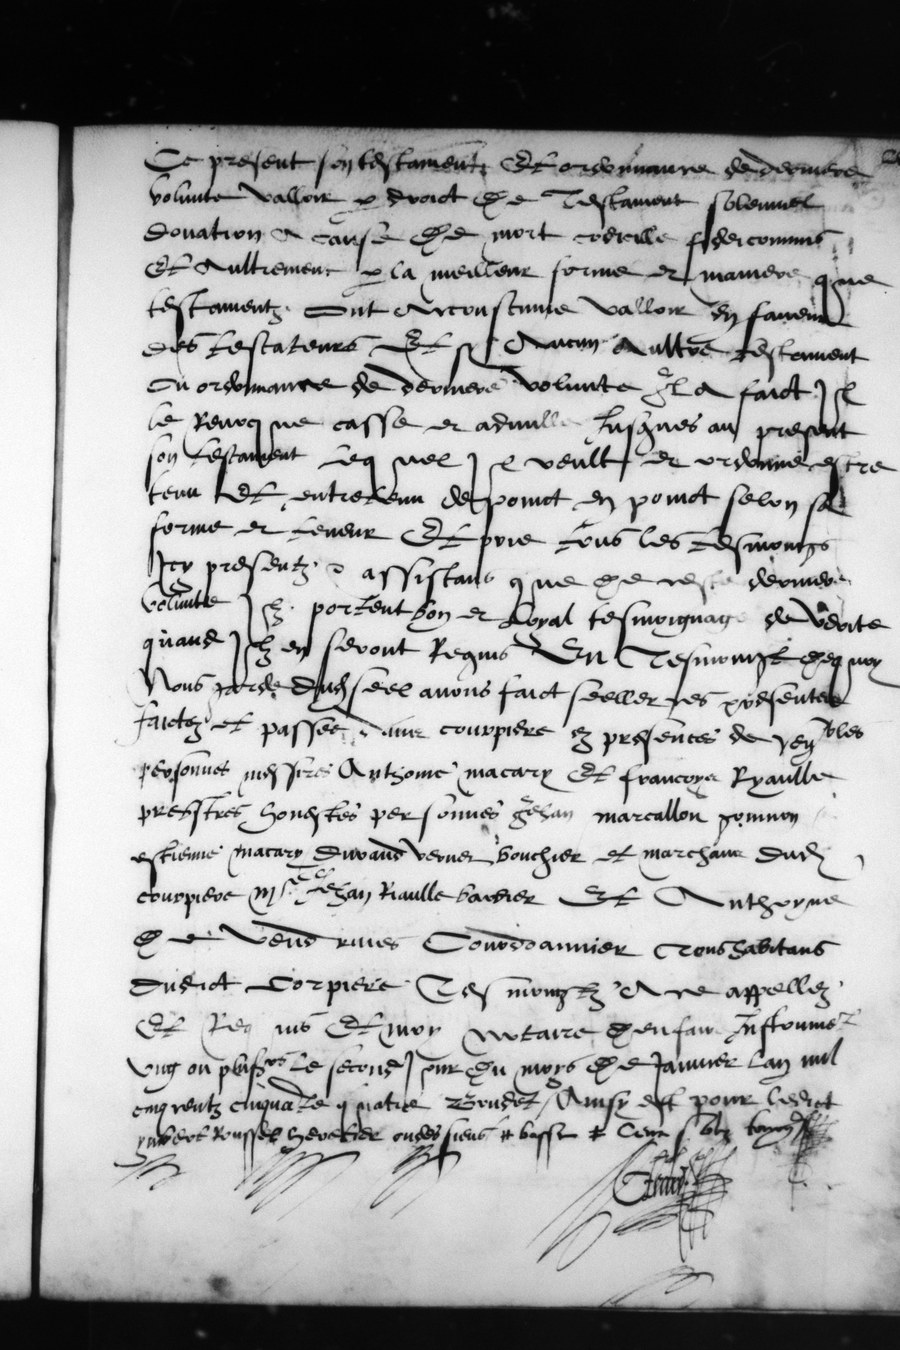 Ce present son testament Et ordonnance de derniere
volunte valloir p droict De Testament solennel
donation A cause De mort codicille fideicommis
Et Aultrement p la meilleur forme et maniere que
testamentz Ont Acoustume valloir En faveur
des testateurs Et si Aucun Aultre testament
Ou ordonnance de derniere volunte Il A faict Il
le Revocque casse et adnulle Jusques au present
son testament Lequel Il veult et ordonne estre
tenu Et entretenu de poinct en poinct selon sa
forme et teneur Et prie tous les tesmoingz
Icy presentz & assistans que De ceste derniere
volunte Ilz portent bon et Loyal tesmoignage de verite
quand Ilz en seront Requis En Tesmoing Dequoy
Nous garde Dud seel avons faict seeller ces presentes
faictes et passees courpiere Es presences de
personnes messires Anthoine macary Et francoys Ryaulle
prebstres honestes personnes Jehan marcallon
estienne macary Durand verner bouchier et marchant Dud
courpiere Jehan Riaulle barbier Et Anthoyne
De Courdoannier Tous habitans
Dudict Corpiere Tesmoingtz A ce appellez
Et Requis Et moy Notaire
Ung ou plus le second Jour Du moys De Janvier Lan mil
cinq centz cinquante quatre Ainsy est pour Ledict
Roussel heretier